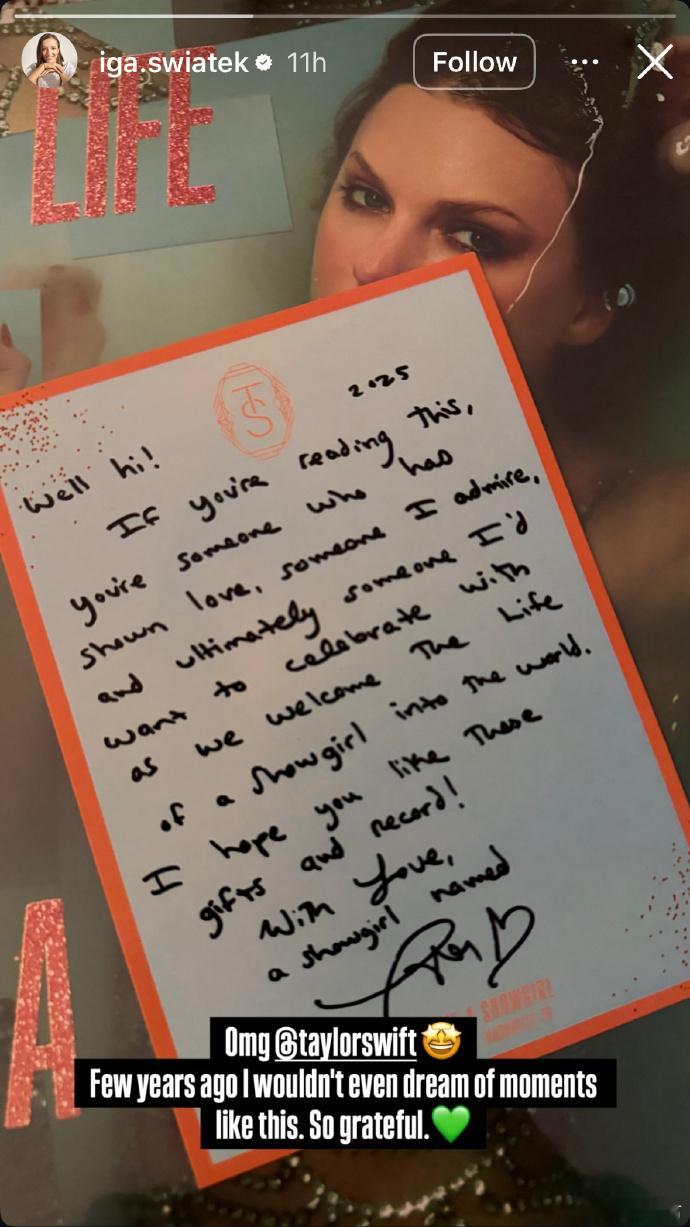 iga.swiatek 11h Follow
LIFE
TS
2025
Well hi!
If you're reading this,
you're someone who has
shown love, someone I admire,
and ultimately someone I'd
want to celebrate with
as we welcome The Life
of a Showgirl into the world.
I hope you like these
gifts and record!
With Love,
a showgirl named
A
A SHOWGIRL
Omg @taylorswift
Few years ago I wouldn't even dream of moments
like this. So grateful.